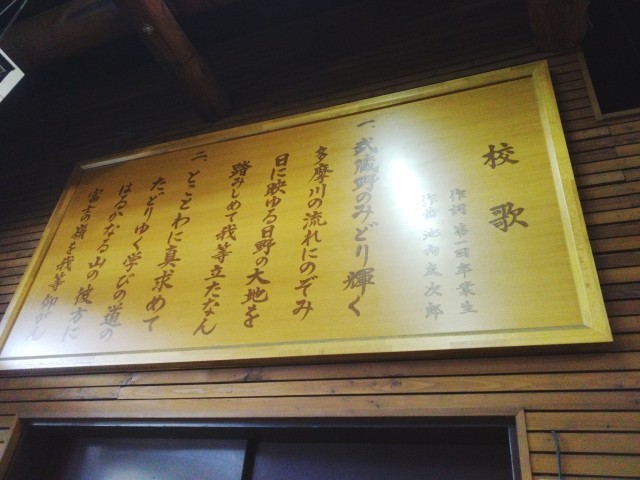 校歌
作詞 第一回卒業生
作曲 池内友次郎
一、武蔵野のみどり輝く
多摩川の流れにのぞみ
日に映ゆる日野の大地を
踏みしめて我等立たなん
二、とことわに真求めて
たどりゆく学びの道の
はるかなる山の彼方に
富士の嶺を我等仰がん